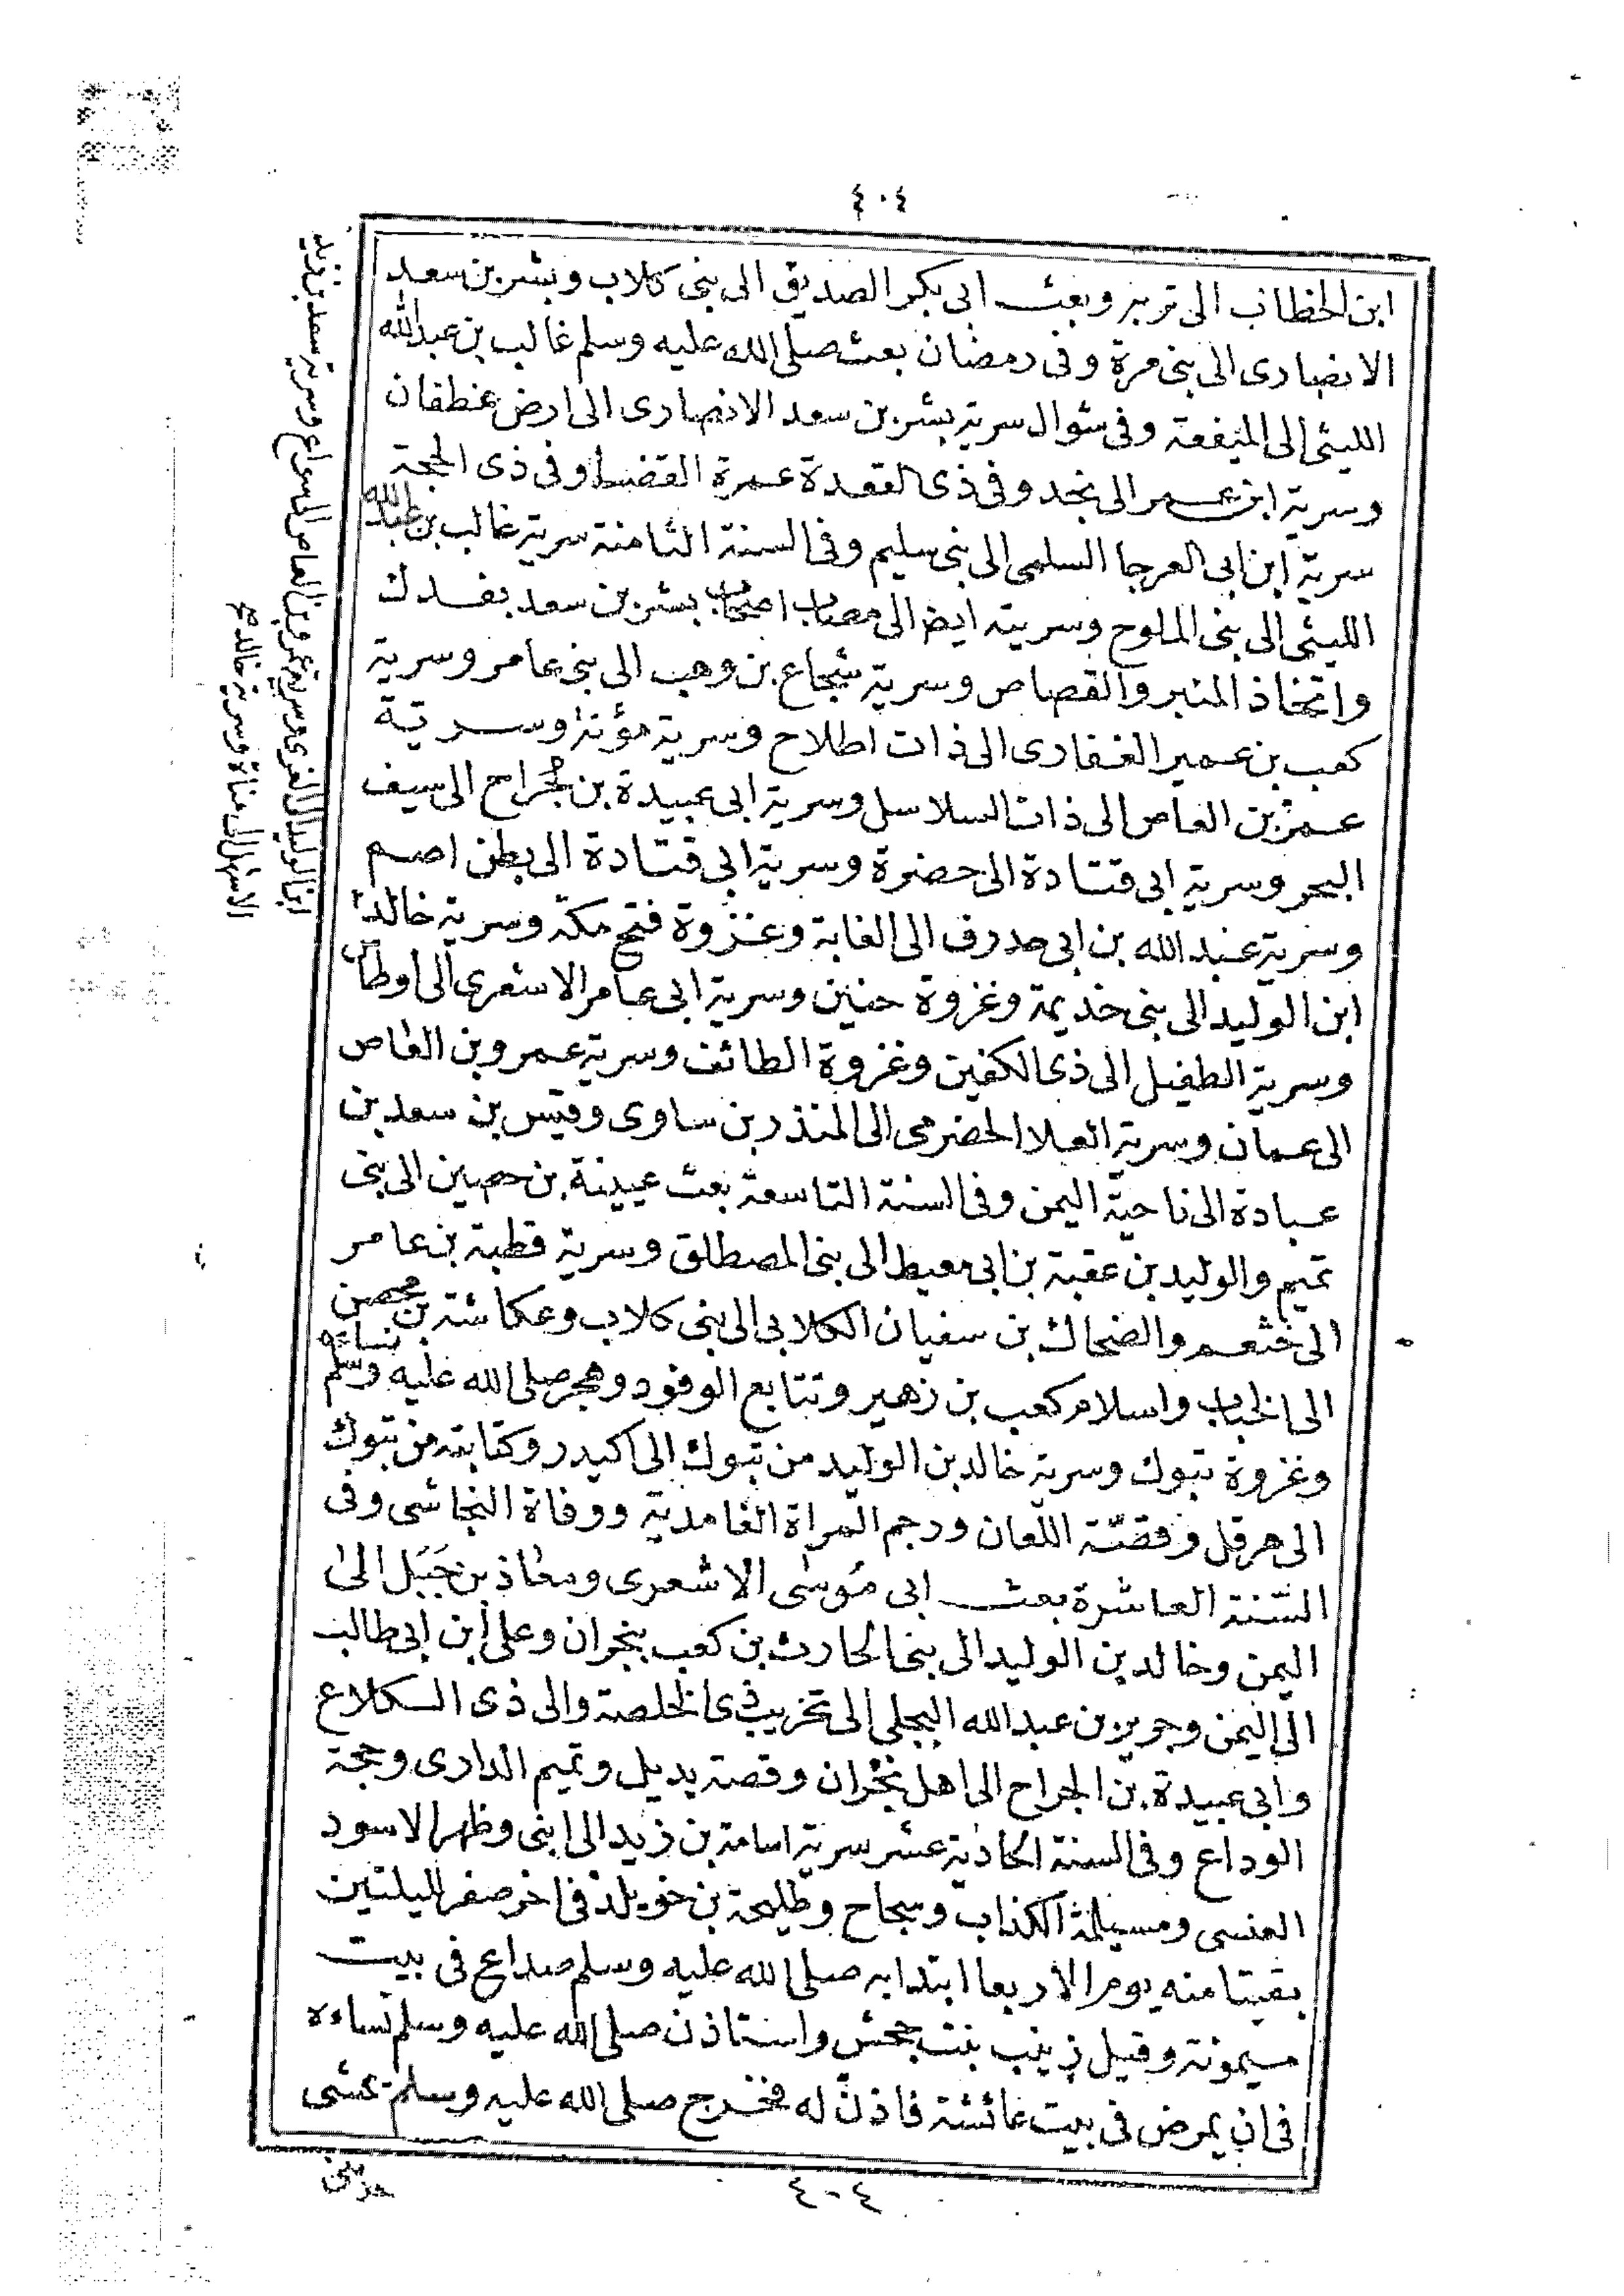 ٤٠٤
ابن الخطاب الى تربر وبعث ابى بكر الصديق الى بنى كلاب وبشر بن سعد
الانصارى الى بنى مرة وفى رمضان بعث صلى الله عليه وسلم غالب بن عبدالله
الليثى الى الميفعة وفى شوال سرية بشر بن سعد الانصارى الى ارض غطفان
وسرية ابن عمر الى نجد وفى ذى القعدة عمرة القضا وفى ذى الحجة
سرية ابن ابى العرجا السلمى الى بنى سليم وفى السنة الثامنة سرية غالب بن عبدالله
الليثى الى بنى الملوح وسريته ايضا الى مصاب اصحاب بشر بن سعد بفدك
واتخاذ المنبر والقصاص وسرية شجاع بن وهب الى بنى عامر وسرية
كعب بن عمير الغفارى الى ذات اطلاح وسرية مؤتة وسرية
عمرو بن العاص الى ذات السلاسل وسرية ابى عبيدة بن جُراح الى سيف
البحر وسرية ابى قتادة الى حضرة وسرية ابى قتادة الى بطن اصم
وسرية عبد الله بن ابى حدرف الى الغابة وغزوة فتح مكة وسرية خالد
ابن الوليد الى بنى خديمة وغزوة حنين وسرية ابى عامر الاشعرى الى اوطاس
وسرية الطفيل الى ذى الكفين وغزوة الطائف وسرية عمرو بن العاص
الى عمان وسرية العلا الحضرمى الى المنذر بن ساوى وقيس بن سعد بن
عبادة الى ناحية اليمن وفى السنة التاسعة بعث عيينة بن حصين الى بنى
تميم والوليد بن عقبة بن ابى معيط الى بنى المصطلق وسرية قطبة بن عامر
الى خثعم والضحاك بن سفيان الكلابى الى بنى كلاب وعكاشة بن محصن
الى الخباب واسلام كعب بن زهير وتتابع الوفود وهجر صلى الله عليه وسلم نساءه
وغزوة تبوك وسرية خالد بن الوليد من تبوك الى اكيدر وكتابته من تبوك
الى هرقل وقصّة اللعان ورجم المراة الغامدية ووفاة النجاشى وفى
السّنة العاشرة بعث ابى موسى الاشعرى ومعاذ بن جَبَل الى
اليمن وخالد بن الوليد الى بنى الحارث بن كعب بنجران وعلى ابن ابى طالب
الى اليمن وجرير بن عبد الله البجلى الى تخريب ذى الخلصة والى ذى الكلاع
وابى عبيدة بن الجراح الى اهل نجران وقصة بديل وتميم الدارى وحجة
الوداع وفى السنة الحادية عشر سرية اسامة بن زيد الى ابنى وظهر الاسود
العنسى ومسيلمة الكذاب وسجاح وطليحة بن خويلد فى اخر صفر لليلتين
بقيتا منه يوم الاربعا ابتدا به صلى الله عليه وسلم صداع فى بيت
ميمونة وقيل زينب بنت جحش واستاذن صلى الله عليه وسلم نساءه
فى ان يمرض فى بيت عائشة فاذن له فخرج صلى الله عليه وسلم يمشى
ابن الوليد الى الغرى وسرية عمرو بن العاص الى سواع وسرية سعد بن زيد
الاسهل الى مناة وسرية خالد
٤٠٤